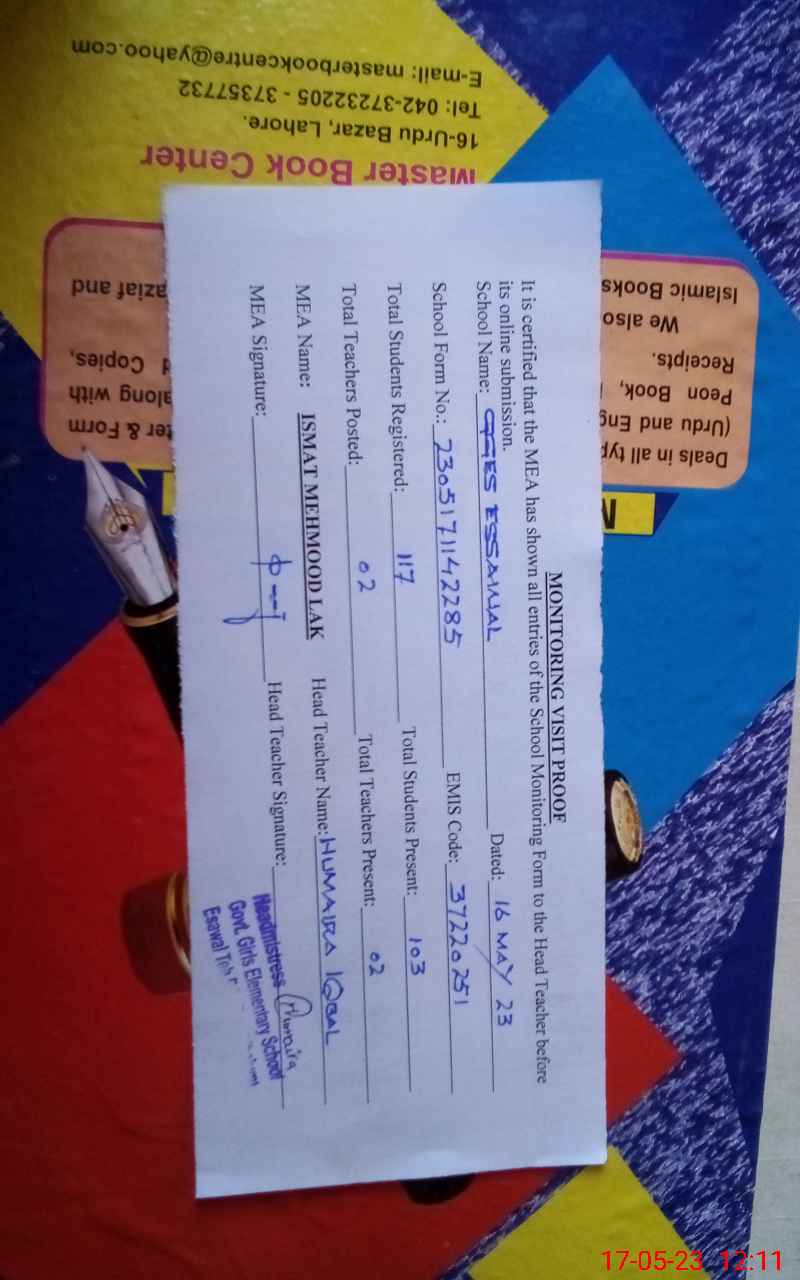 E-mail: masterbookcentre@yahoo.com
Tel: 042-37232205 - 37357732
16-Urdu Bazar, Lahore.
Master Book Center
Islamic Books
We also
Receipts.
Peon Book,
(Urdu and Eng
Deals in all typ
aziaf and
d Copies,
along with
ter & Form
MONITORING VISIT PROOF
It is certified that the MEA has shown all entries of the School Monitoring Form to the Head Teacher before
its online submission.
School Name: GGES ESSAWAL Dated: 16 MAY 23
School Form No.: 2305171142285 EMIS Code: 37220251
Total Students Registered: 117 Total Students Present: 103
Total Teachers Posted: 02 Total Teachers Present: 02
MEA Name: ISMAT MEHMOOD LAK Head Teacher Name: HUMAIRA IQBAL
MEA Signature: Head Teacher Signature: Humaira
Headmistress
Govt. Girls Elementary School
Esawal
17-05-23 12:11